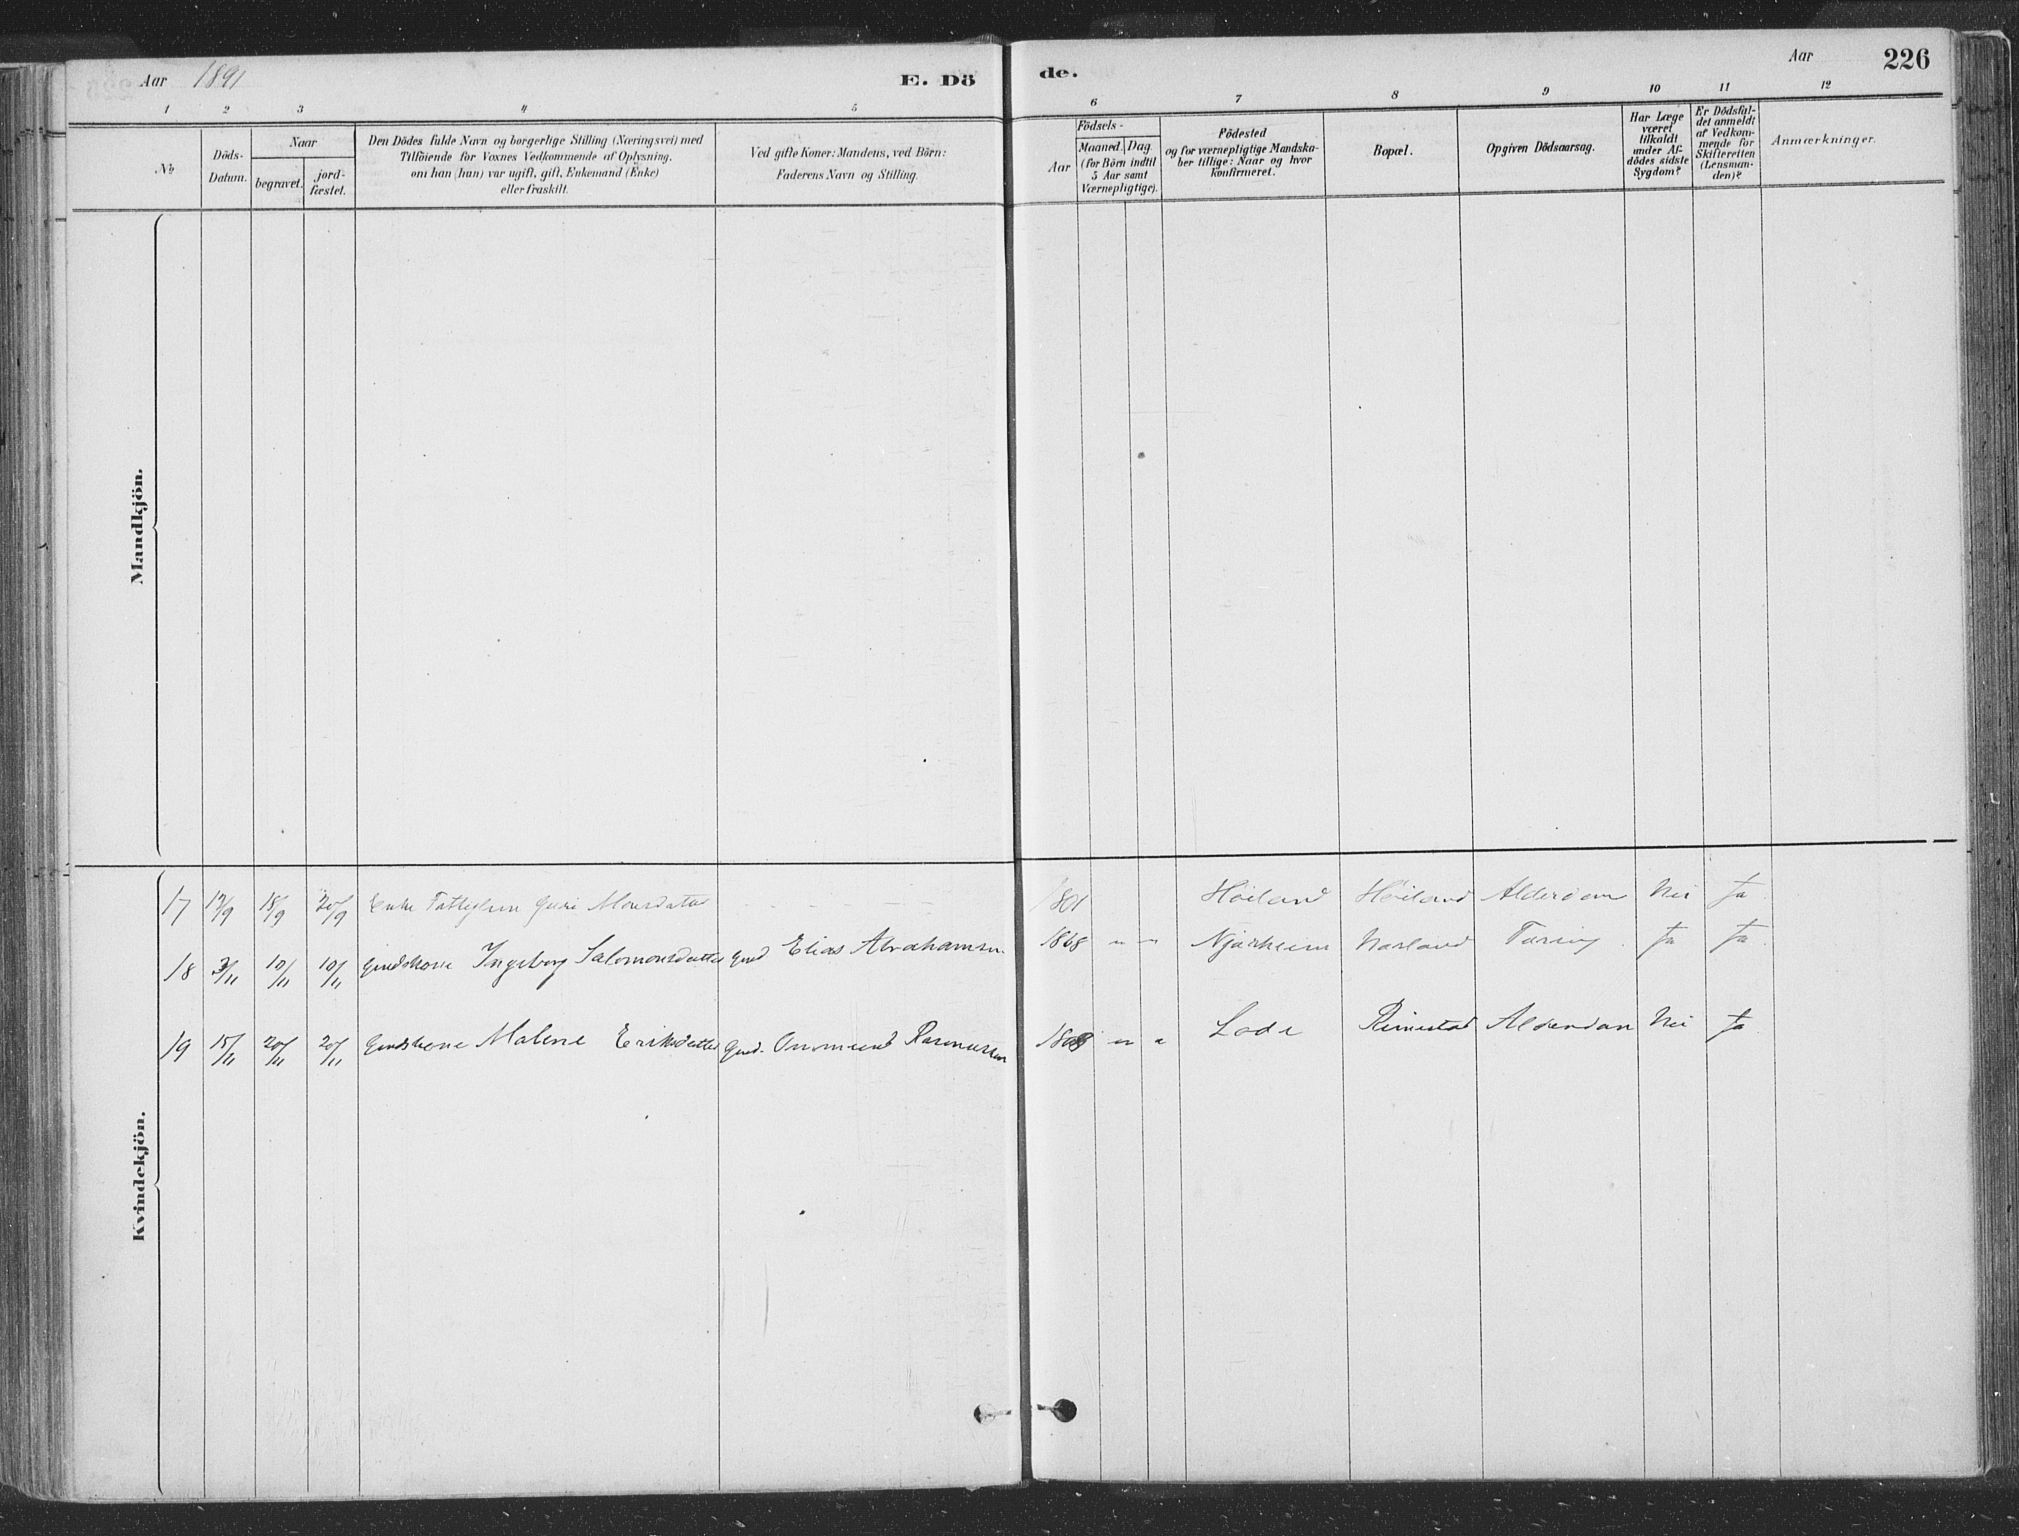 Aar 1891
E. Dö
de.
Aar
226
1 2 3 4 5 6 7 8 9 10 11 12
No
Döds-
Datum.
Naar
begravet.
jord-
fæstet.
Den Dödes fulde Navn og borgerlige Stilling (Næringsvei) med
Tilföiende for Voxnes Vedkommende af Oplysning.
om han (hun) var ugift, gift, Enkemand (Enke)
eller fraskilt.
Ved gifte Koner: Mandens, ved Börn:
Faderens Navn og Stilling.
Födsels-
Aar
Maaned. Dag.
(for Börn indtil
5 Aar samt
Værnepligtige).
Födested
og for værnepligtige Mandska-
ber tillige: Naar og hvor
konfirmeret.
Bopæl.
Opgiven Dödsaarsag.
Har Læge
været
tilkaldt
under Af-
dödes sidste
Sygdom?
Er Dödsfal-
det anmeldt
af Vedkom-
mende for
Skifteretten
(Lensman-
den)?
Anmærkninger.
Mandkjön.
Kvindekjön.
17 12/9 18/9 20/9 Enke Guri Monsdatter - - - 1801 Höiland Höiland Alderdom Nei Ja
18 3/11 10/11 10/11 Gmdskone Ingeborg Salomonsdatter Gmd Elias Abrahamsen 1868 " " Njærheim Tæring Ja Ja
19 15/11 20/11 20/11 Gmdskone Malene Eriksdatter Gmd. Ommund Rasmussen " " Lode Rimestad Alderdom Nei Ja